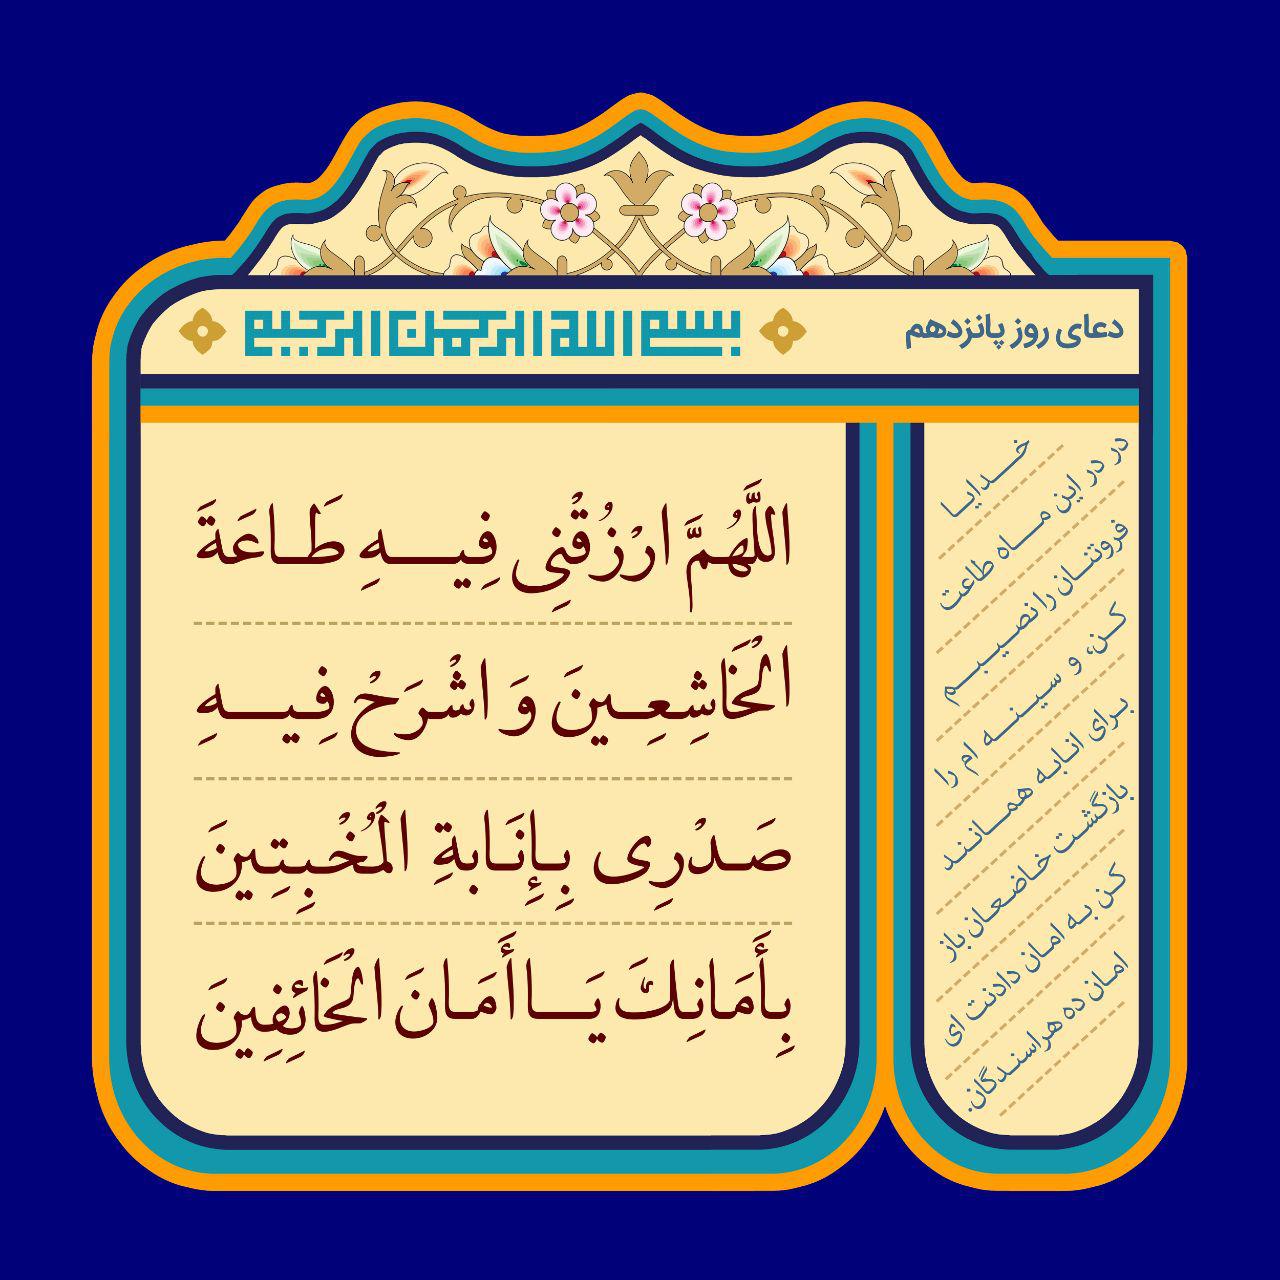 دعای روز پانزدهم
بسم الله الرحمن الرحیم
اللَّهُمَّ ارْزُقْنِی فِیهِ طَاعَةَ
الْخَاشِعِینَ وَ اشْرَحْ فِیهِ
صَدْرِی بِإِنَابةِ الْمُخْبِتِینَ
بِأَمَانِكَ یَا أَمَانَ الْخَائِفِینَ
خدایا
در در این ماه طاعت
فروتنان را نصیبم
کن، و سینه ام را
برای انابه همانند
بازگشت خاضعان باز
کن به امان دادنت ای
امان ده هراسندگان.